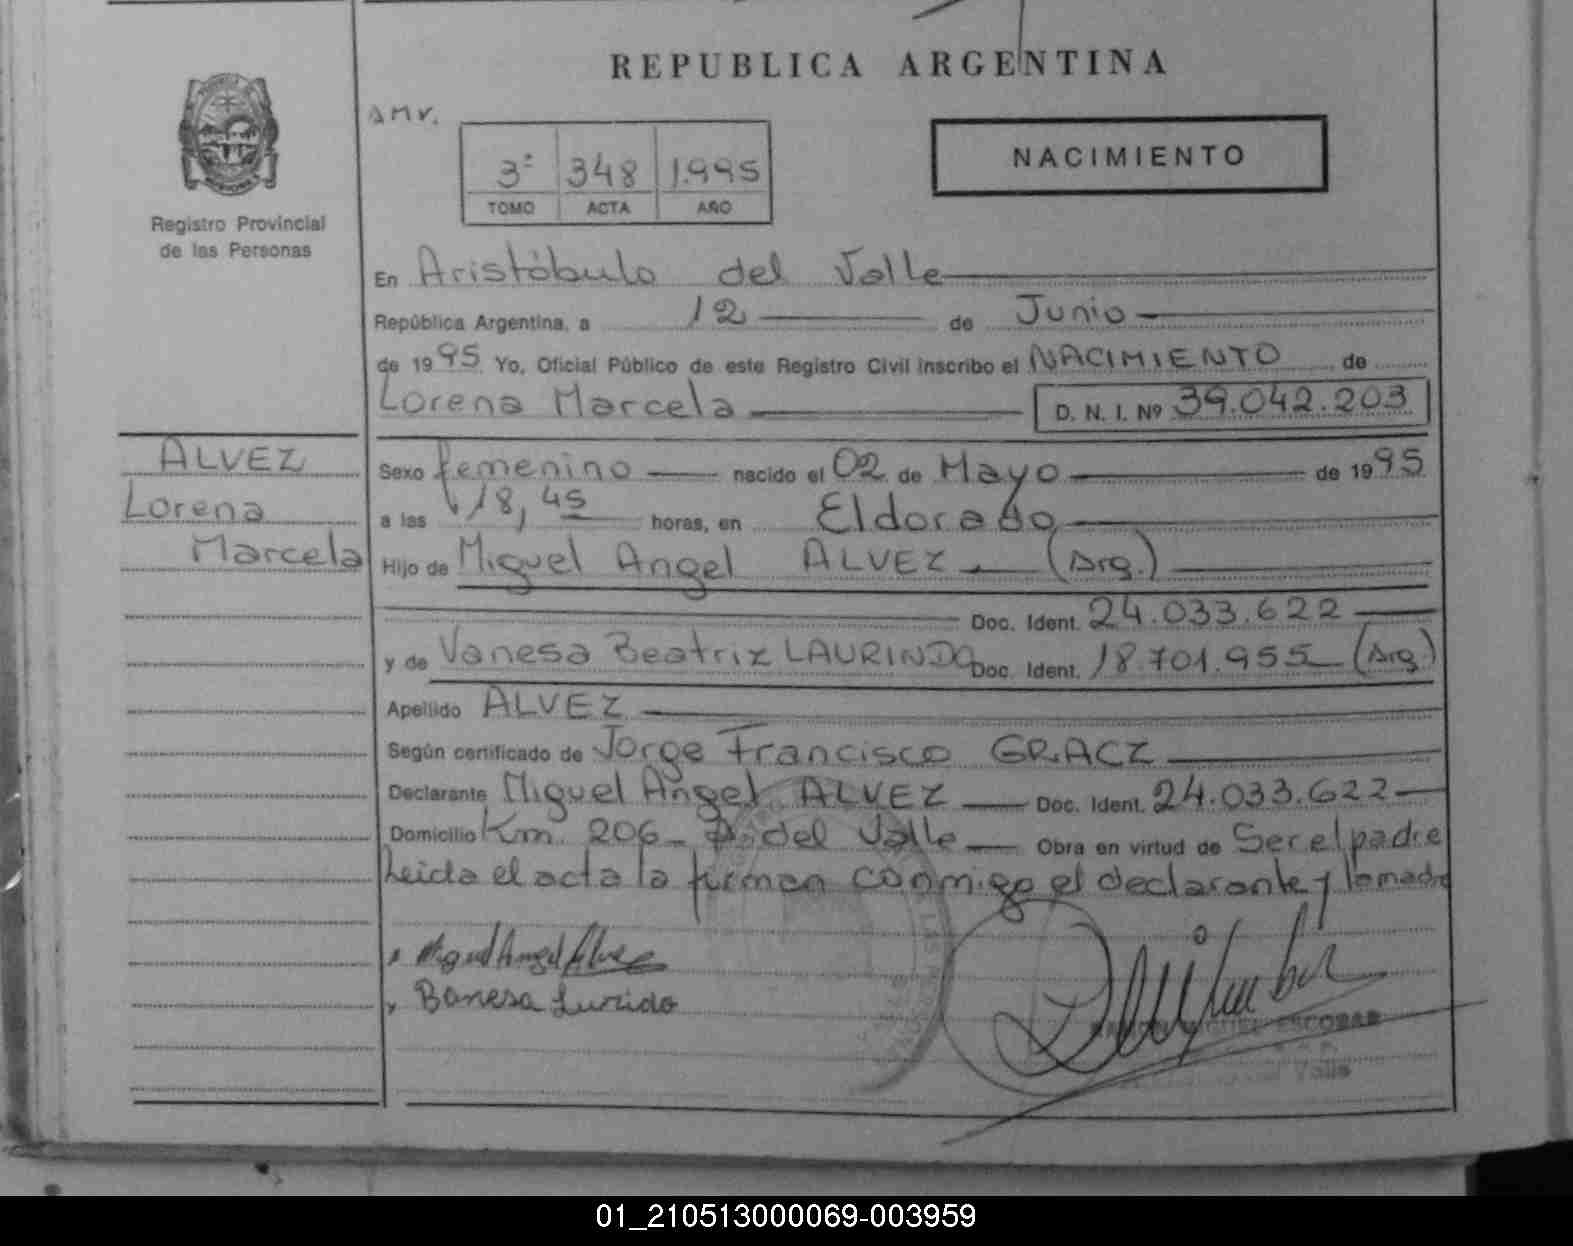 REPUBLICA ARGENTINA
AMV.
3º 348 1.995
TOMO ACTA AÑO
NACIMIENTO
Registro Provincial
de las Personas
En Aristóbulo del Valle
República Argentina, a 12 de Junio
de 1995 Yo, Oficial Público de este Registro Civil inscribo el NACIMIENTO de
Lorena Marcela D. N. I. Nº 39.042.203
ALVEZ
Lorena
Marcela
Sexo femenino nacido el 02 de Mayo de 1995
a las 18,45 horas, en Eldorado
Hijo de Miguel Angel ALVEZ (Arg.)
Doc. Ident. 24.033.622
y de Vanesa Beatriz LAURINDO Doc. Ident. 18.701.955 (Arg.)
Apellido ALVEZ
Según certificado de Jorge Francisco GRACZ
Declarante Miguel Angel ALVEZ Doc. Ident. 24.033.622
Domicilio Km. 206 - A. del Valle Obra en virtud de Ser el padre
Leida el acta la firman conmigo el declarante y la madre
Miguel Angel Alvez
Banesa Lurido
RAMON MIGUEL ESCOBAR
Valle
01_210513000069-003959